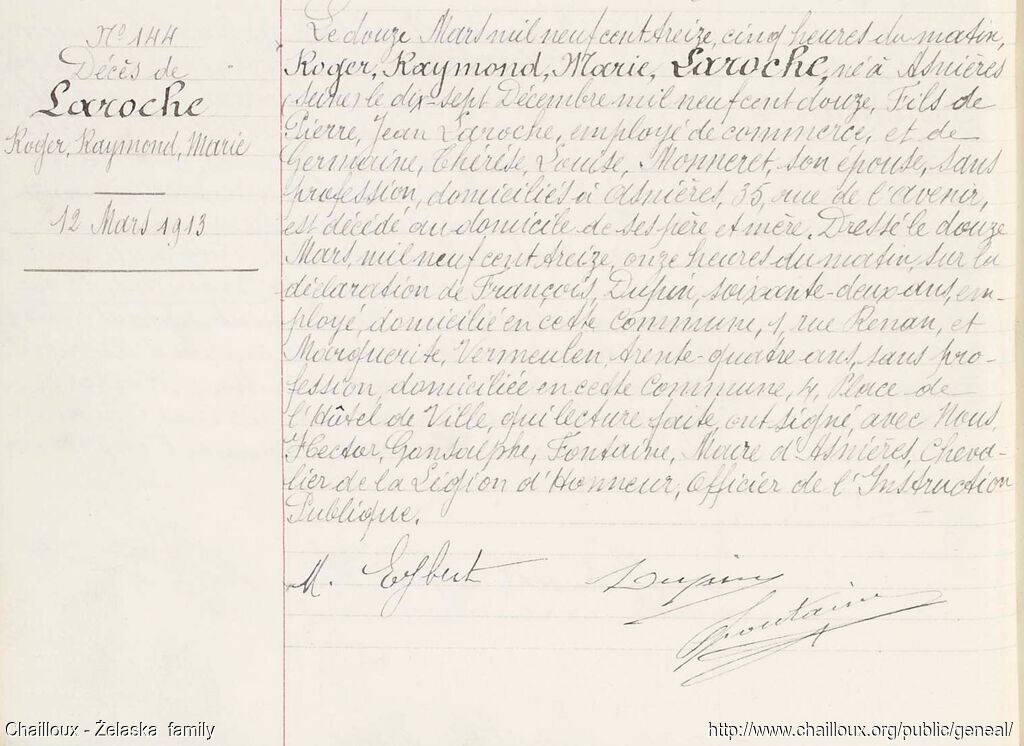 Nº 144
Décès de
Laroche
Roger, Raymond, Marie
12 Mars 1913
Le douze Mars mil neuf cent treize, cinq heures du matin,
Roger, Raymond, Marie, Laroche, né à Asnières
Seine le dix-sept Décembre mil neuf cent douze, Fils de
Pierre, Jean Laroche, employé de commerce, et de
Germaine, Thérèse, Louise, Monneret, son épouse, sans
profession, domiciliés à Asnières, 35, rue de l'avenir,
est décédé au domicile de ses père et mère. Dressé le douze
Mars, mil neuf cent treize, onze heures du matin, sur la
déclaration de François, Dupin, soixante-deux ans, em-
ployé, domicilié en cette Commune, 1, rue Renan, et
Marguerite, Vermeulen, trente-quatre ans, sans pro-
fession, domiciliée en cette Commune, 4, Place de
l'Hôtel de Ville, qui lecture faite, ont signé, avec Nous,
Hector, Gonsalphe, Fontaine, Maire d'Asnières, Cheva-
lier de la Légion d'Honneur, Officier de l'Instruction
Publique.
M. Dupin
Fontaine
Chailloux - Żelaska family
http://www.chailloux.org/public/geneal/